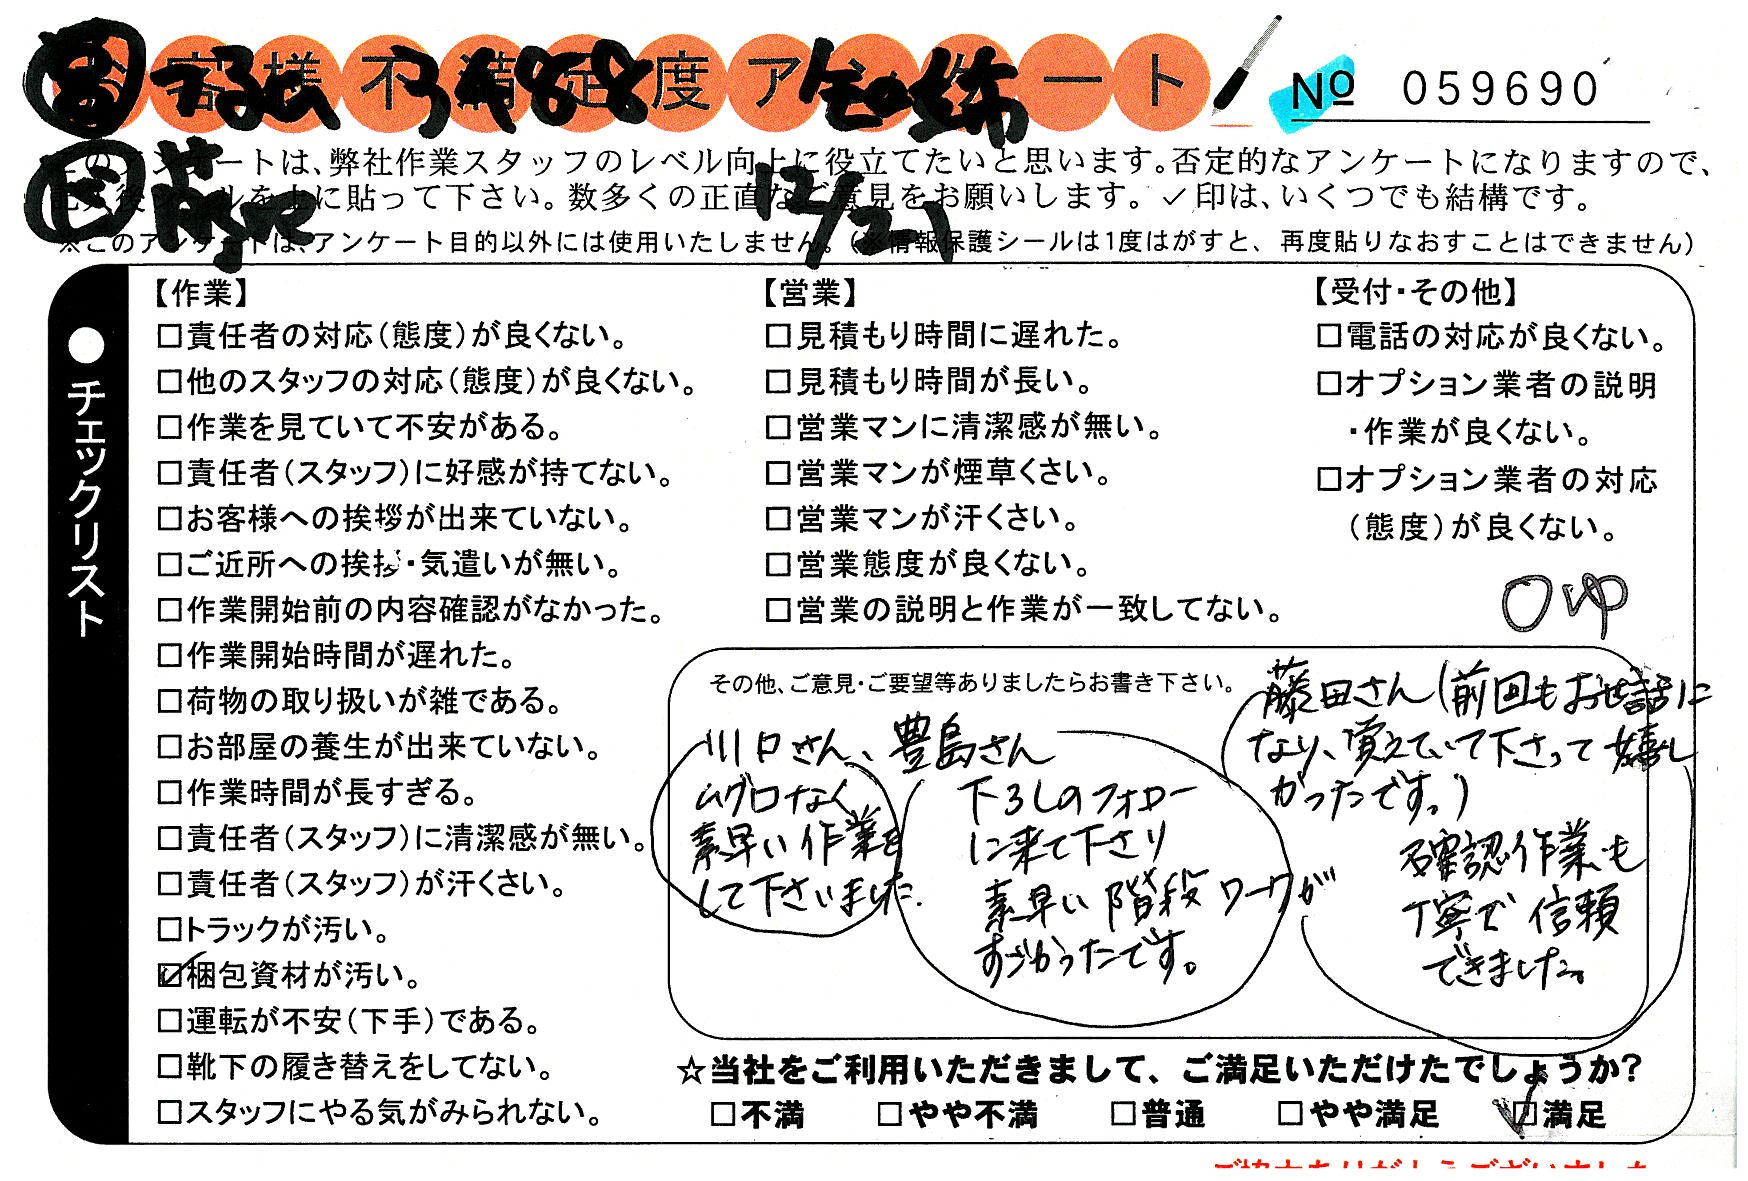 お客様不満足度アンケート
№ 059690
このアンケートは、弊社作業スタッフのレベル向上に役立てたいと思います。否定的なアンケートになりますので、
記入後シールを上に貼って下さい。数多くの正直なご意見をお願いします。✓印は、いくつでも結構です。
12/21
※このアンケートは、アンケート目的以外には使用いたしません。(※情報保護シールは1度はがすと、再度貼りなおすことはできません)
●チェックリスト
【作業】
□責任者の対応(態度)が良くない。
□他のスタッフの対応(態度)が良くない。
□作業を見ていて不安がある。
□責任者(スタッフ)に好感が持てない。
□お客様への挨拶が出来ていない。
□ご近所への挨拶・気遣いが無い。
□作業開始前の内容確認がなかった。
□作業開始時間が遅れた。
□荷物の取り扱いが雑である。
□お部屋の養生が出来ていない。
□作業時間が長すぎる。
□責任者(スタッフ)に清潔感が無い。
□責任者(スタッフ)が汗くさい。
□トラックが汚い。
☑梱包資材が汚い。
□運転が不安(下手)である。
□靴下の履き替えをしてない。
□スタッフにやる気がみられない。
【営業】
□見積もり時間に遅れた。
□見積もり時間が長い。
□営業マンに清潔感が無い。
□営業マンが煙草くさい。
□営業マンが汗くさい。
□営業態度が良くない。
□営業の説明と作業が一致してない。
【受付・その他】
□電話の対応が良くない。
□オプション業者の説明
・作業が良くない。
□オプション業者の対応
(態度)が良くない。
その他、ご意見・ご要望等ありましたらお書き下さい。
川口さん、豊島さん
ムダロなく
素早い作業を
して下さいました.
下ろしのフォロー
に来て下さり
素早い階段ワークが
すごかったです。
藤田さん(前回もお世話に
なり、覚えていて下さって嬉し
かったです。)
確認作業も
丁寧で信頼
できました。
☆当社をご利用いただきまして、ご満足いただけたでしょうか?
□不満 □やや不満 □普通 □やや満足 ☑満足
ご協力ありがとうございました